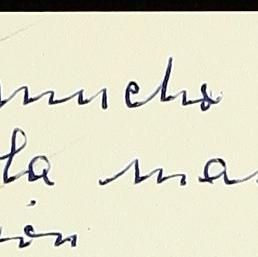 mucho
la mas
ión